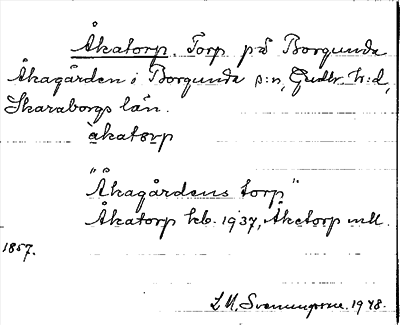 Åkatorp. Torp på Borgunda
Åkagården i Borgunda s:n, Gudhr. h:d,
Skaraborgs län.
åkatorp
"Åkagårdens torp"
Åkatorp kb. 1937, Åketorp mtl.
1857.
1948.